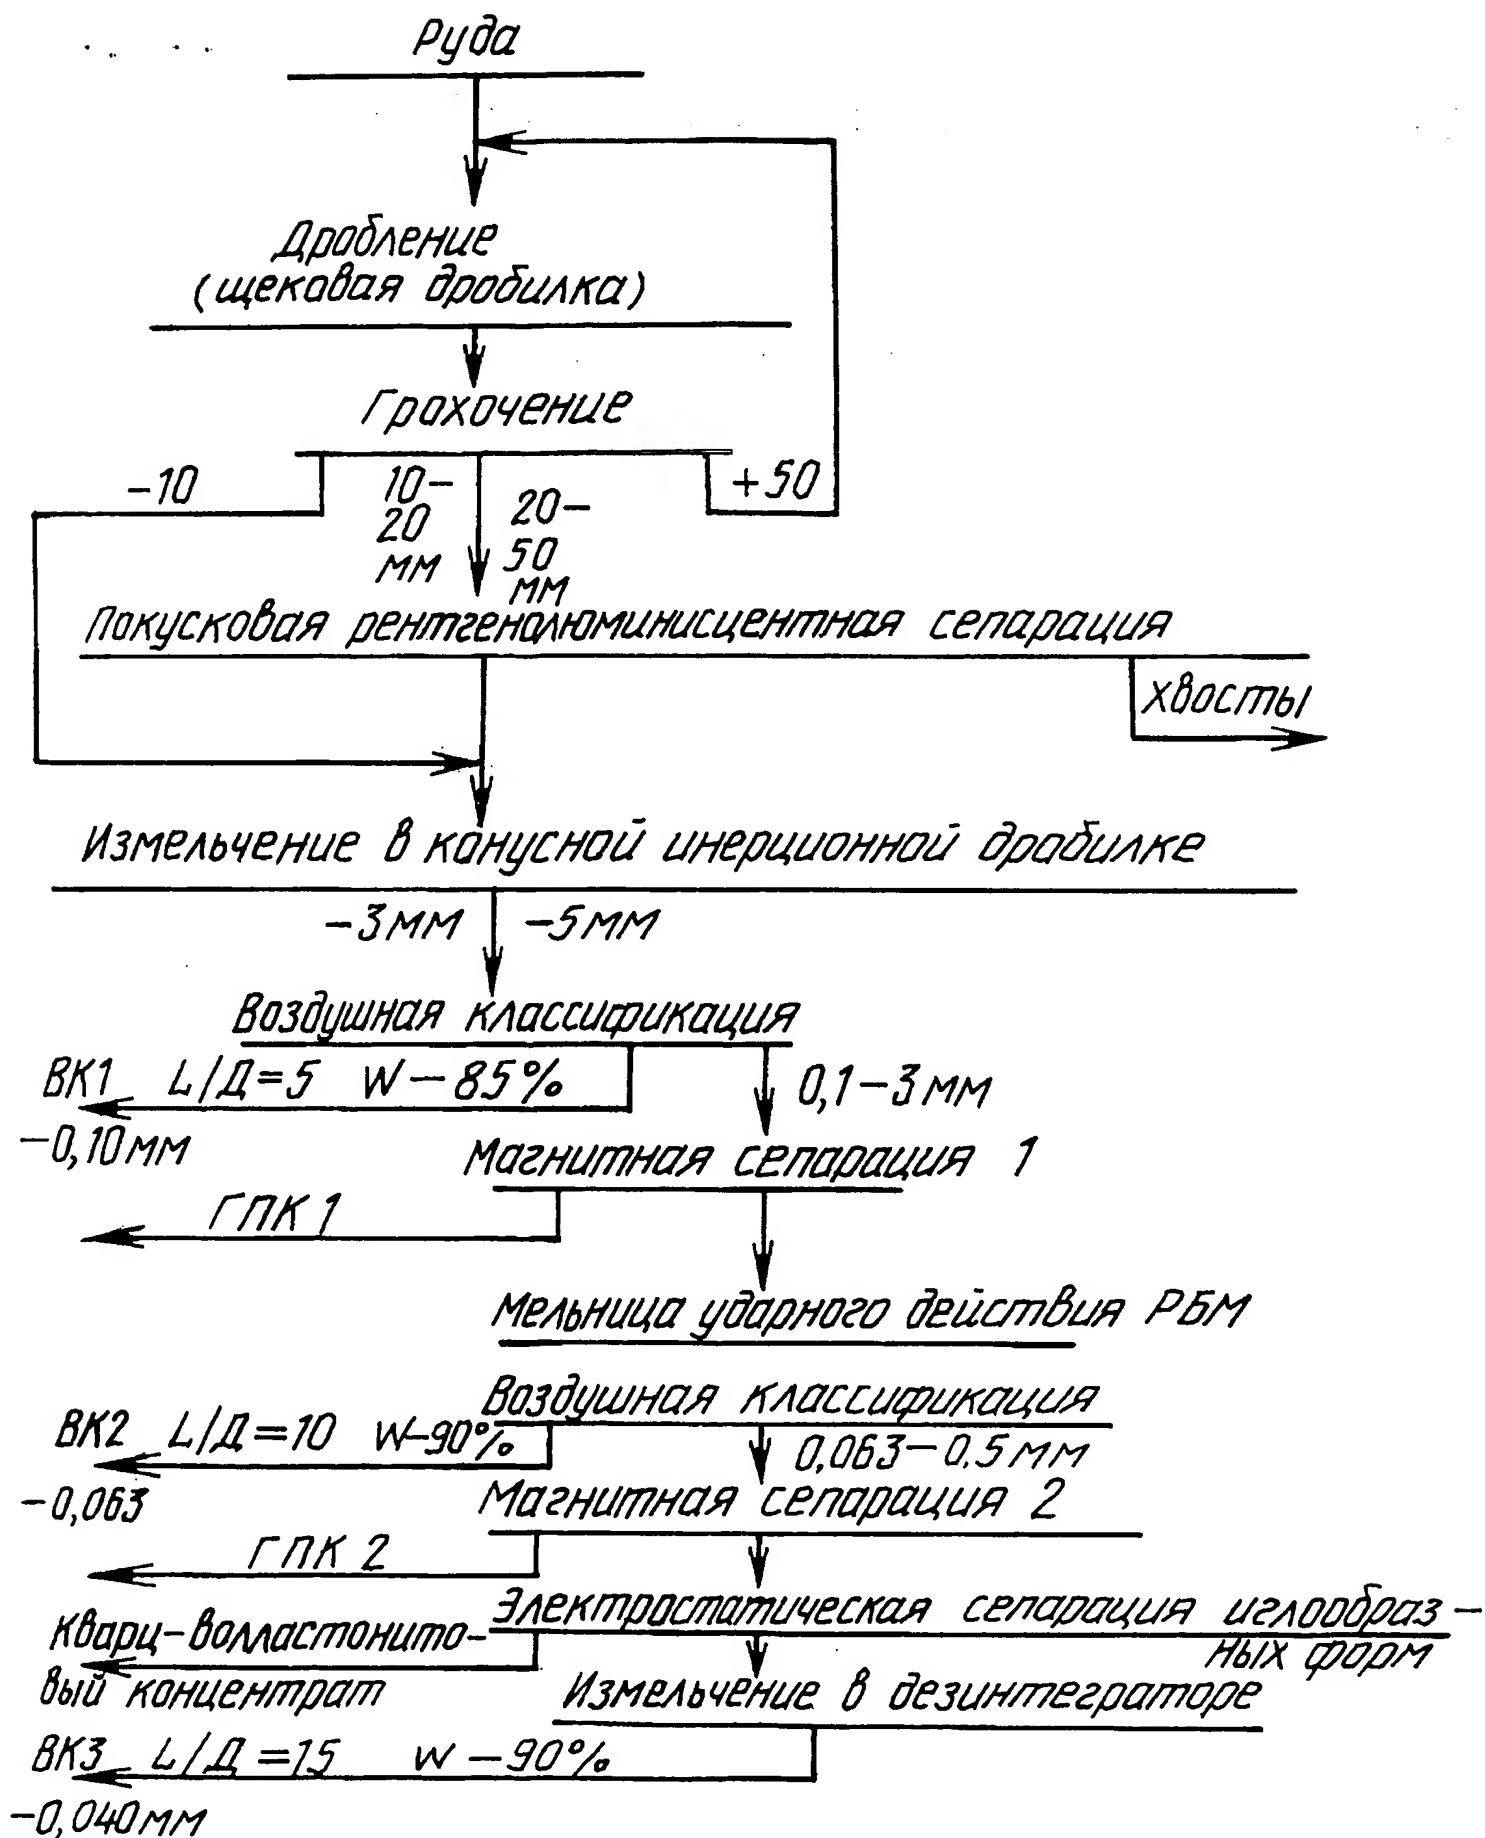 Руда
Дробление
(щековая дробилка)
Грохочение
-10
10-
20
мм
20-
50
мм
+50
Покусковая рентгенолюминисцентная сепарация
хвосты
Измельчение в конусной инерционной дробилке
-3мм
-5мм
Воздушная классификация
ВК1 L/Д=5 W-85%
-0,10мм
0,1-3мм
Магнитная сепарация 1
ГПК 1
Мельница ударного действия РБМ
Воздушная классификация
ВК2 L/Д=10 W-90%
-0,063
0,063-0,5мм
Магнитная сепарация 2
ГПК 2
Электростатическая сепарация иглообраз-
ных форм
Кварц-волластонито-
вый концентрат
Измельчение в дезинтеграторе
ВК3 L/Д=15 W-90%
-0,040мм